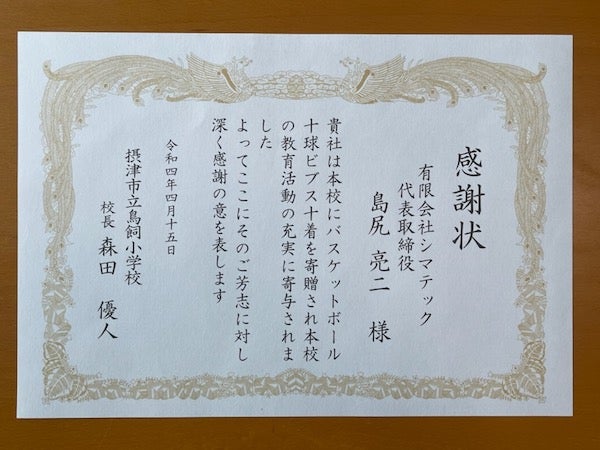 感謝状
有限会社シマテック
代表取締役
島尻 亮二 様
貴社は本校にバスケットボール
十球ビブス十着を寄贈され本校
の教育活動の充実に寄与されま
した
よってここにそのご芳志に対し
深く感謝の意を表します
令和四年四月十五日
摂津市立鳥飼小学校
校長 森田 優人